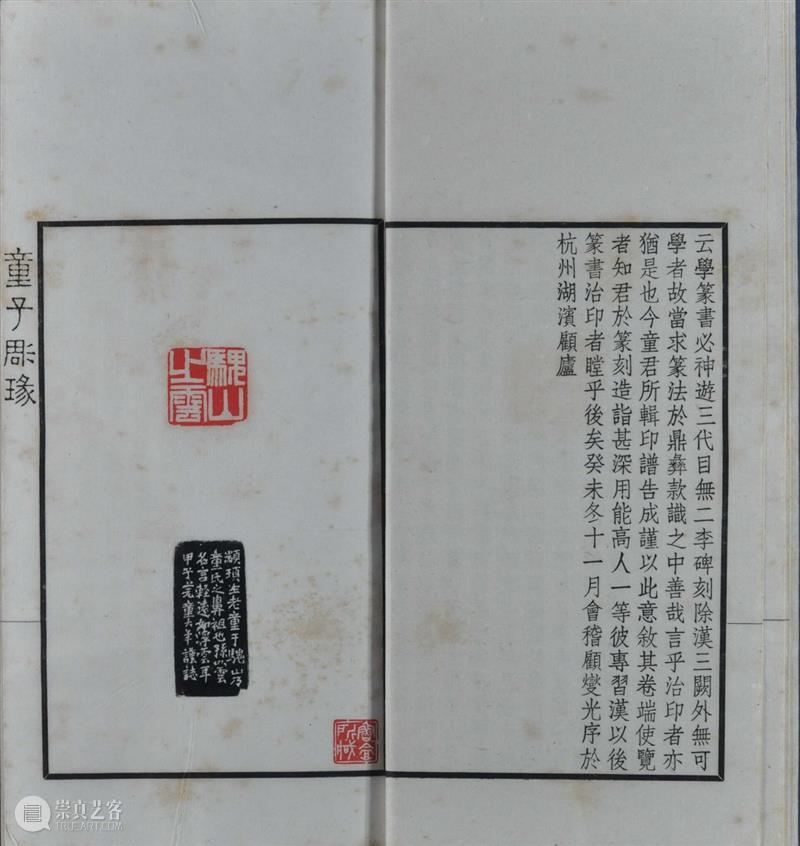 云學篆書必神遊三代目無二李碑刻除漢三闕外無可
學者故當求篆法於鼎彝款識之中善哉言乎治印者亦
猶是也今童君所輯印譜告成謹以此意敘其卷端使覽
者知君於篆刻造詣甚深用能高人一等彼專習漢以後
篆書治印者瞠乎後矣癸未冬十一月會稽顧燮光序於
杭州湖濱顧廬
騩山
之雲
顓頊生老童于騩山乃
童氏之鼻祖也孫以雲
名言輕遠如浮雲耳
甲子
童大年謹誌
所城
童子雕瑑
崇真艺客
TRUEART.COM